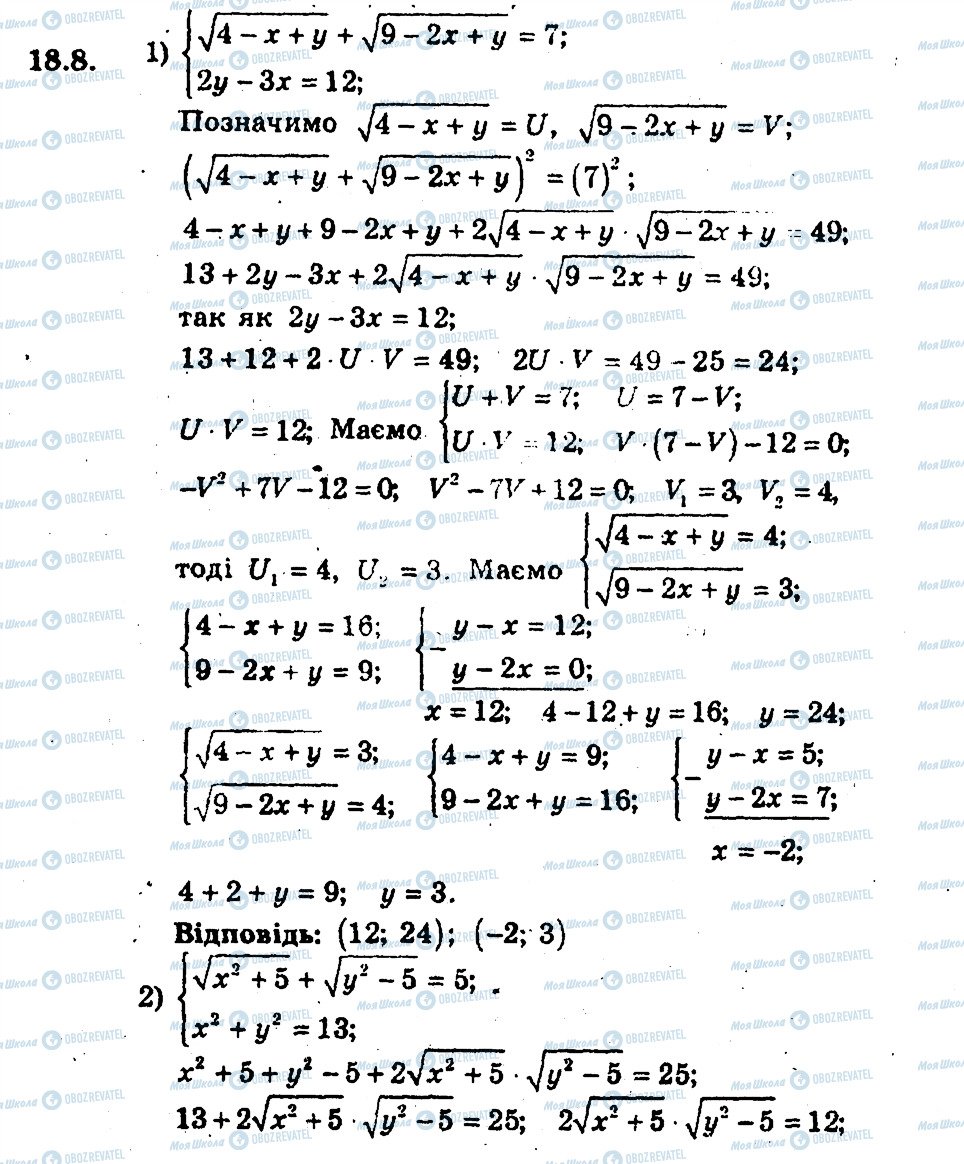 18.8. 1) {√(4 − x + y) + √(9 − 2x + y) = 7;
{2y − 3x = 12;
Позначимо √(4 − x + y) = U, √(9 − 2x + y) = V;
(√(4 − x + y) + √(9 − 2x + y))² = (7)²;
4 − x + y + 9 − 2x + y + 2√(4 − x + y) · √(9 − 2x + y) = 49;
13 + 2y − 3x + 2√(4 − x + y) · √(9 − 2x + y) = 49;
так як 2y − 3x = 12;
13 + 12 + 2 · U · V = 49; 2U · V = 49 − 25 = 24;
U · V = 12; Маємо {U + V = 7; U = 7 − V;
{U · V = 12; V · (7 − V) − 12 = 0;
−V² + 7V − 12 = 0; V² − 7V + 12 = 0; V₁ = 3, V₂ = 4,
тоді U₁ = 4, U₂ = 3. Маємо {√(4 − x + y) = 4;
{√(9 − 2x + y) = 3;
{4 − x + y = 16; {− y − x = 12;
{9 − 2x + y = 9; y − 2x = 0;
x = 12; 4 − 12 + y = 16; y = 24;
{√(4 − x + y) = 3; {4 − x + y = 9; {− y − x = 5;
{√(9 − 2x + y) = 4; {9 − 2x + y = 16; y − 2x = 7;
x = −2;
4 + 2 + y = 9; y = 3.
Відповідь: (12; 24); (−2; 3)
2) {√(x² + 5) + √(y² − 5) = 5;
{x² + y² = 13;
x² + 5 + y² − 5 + 2√(x² + 5) · √(y² − 5) = 25;
13 + 2√(x² + 5) · √(y² − 5) = 25; 2√(x² + 5) · √(y² − 5) = 12;
Моя Школа OBOZREVATEL